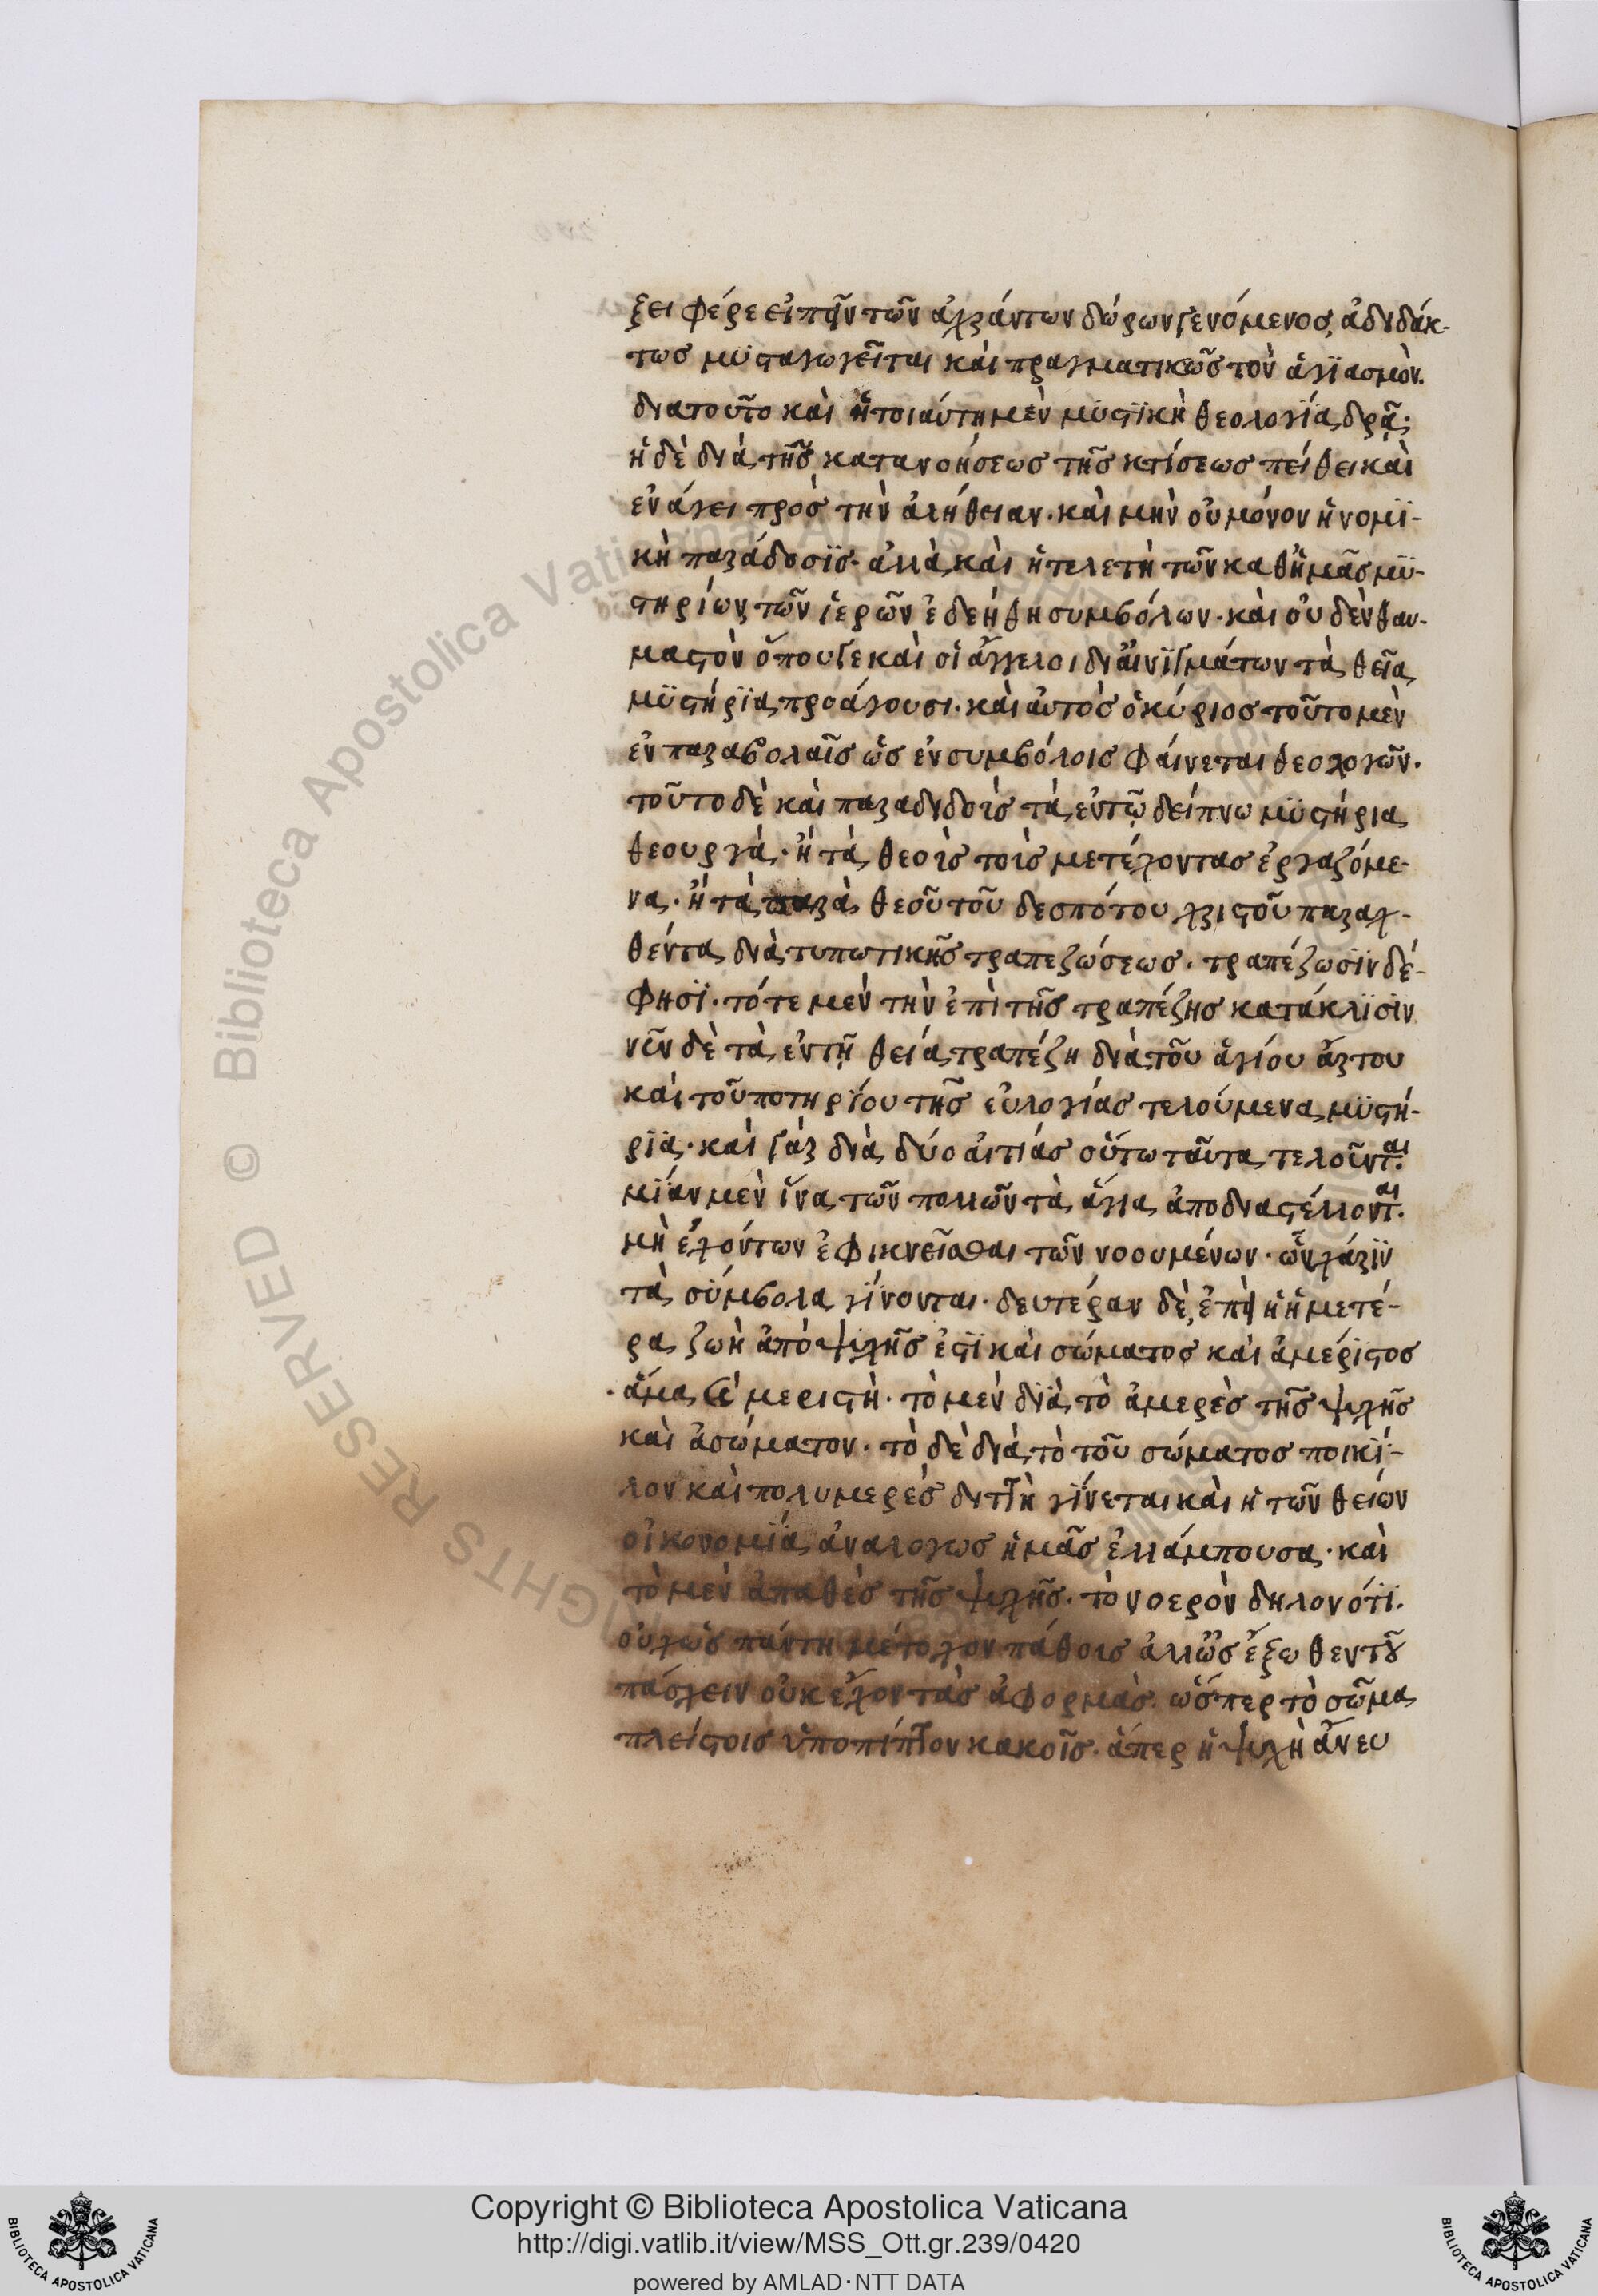 ξει φέρε εἰπεῖν τῶν ἀχράντων δώρων γενόμενος, ἀδιδάκ-
τως μϋσταγωγεῖται καὶ πραγματικῶς τὸν ἁγϊασμὸν.
διατοῦτο καὶ ἡ τοιαύτη μὲν μϋστϊκὴ θεολογϊα, δρᾷ;
ἡ δὲ διὰ τῆς κατανοήσεως τῆς κτίσεως πείθει καὶ
ἐνάγει πρὸς τὴν ἀλήθειαν. καὶ μὴν οὐ μόνον ἡ νομϊ-
κὴ παράδοσϊς. ἀλλὰ καὶ ἡ τελετὴ τῶν καθἡμᾶς μϋ-
στηρίων τῶν ἱερῶν ἐδεήθη συμβόλων. καὶ οὐδὲν θαυ-
μαστὸν ὅπουγε καὶ οἱ ἄγγελοι διαἰνϊγμάτων τὰ θεῖα
μϋστήρϊα προάγουσι. καὶ αὐτὸς ὁ κύριος τοῦτο μὲν
ἐν παραβολαῖς ὡς ἐν συμβόλοις φαίνεται θεολογῶν.
τοῦτο δὲ καὶ παραδιδοὶς τὰ ἐν τῷ δείπνω μϋστήρια
θεουργά. ἢ τὰ θεοὶς τοὶς μετέχοντας ἐργαζόμε-
να. ἢ τὰ παρὰ θεοῦ τοῦ δεσπότου χριστοῦ παραχ-
θέντα διὰ τυπωτικῆς τραπεζώσεως. τραπέζωσϊν δέ-
φησϊ. τότε μεν τὴν ἐπὶ τῆς τραπέζης κατάκλϊσϊν
νῦν δὲ τὰ ἐν τῇ θεία τραπέζη διὰ τοῦ ἁγίου ἄρτου
καὶ τοῦ ποτηρϊου τῆς εὐλογίας τελούμενα μϋστή-
ρϊα. καὶ γὰρ διὰ δύο αἰτιάς οὕτω ταῦτα τελοῦνται.
μϊαν μὲν ἵνα τῶν πολλῶν τὰ ἅγια ἀποδιαστέλλονται.
μὴ ἐχόντων ἐφικνεῖσθαι τῶν νοουμένων. ὧν χάρϊν
τὰ σύμβολα γίνονται. δευτέραν δὲ, ἐπεὶ ἡ ἡμετέ-
ρα ζωὴ ἀπὸ ψυχῆς ἐστϊ καὶ σώματος καὶ ἀμέρϊστος
ἅμα καὶ μεριστὴ. τὸ μὲν διὰ τὸ ἀμερὲς τῆς ψυχῆς
καὶ ἀσώματον. τὸ δὲ διὰ τὸ τοῦ σώματος ποικϊ-
λον καὶ πολυμερές διττὴ γίνεται καὶ ἡ τῶν θείων
οἰκονομϊα ἀναλογως ἡμᾶς ἐλλάμπουσα. καὶ
τὸ μὲν ἀπαθὲς τῆς ψυχῆς. τὸ νοερὸν δηλονότϊ.
οὐχὡς πάντη μέτοχον πάθοις ἀλλὡς ἔξωθεν τοῦ
πάσχειν οὐκ ἔχον τὰς ἀφορμὰς. ὥσπερ τὸ σῶμα
πλείστοις ὑποπίπτον κακοῖς. ἅπερ ἡ ψυχὴ ἄνευ
Copyright © Biblioteca Apostolica Vaticana
http://digi.vatlib.it/view/MSS_Ott.gr.239/0420
powered by AMLAD·NTT DATA